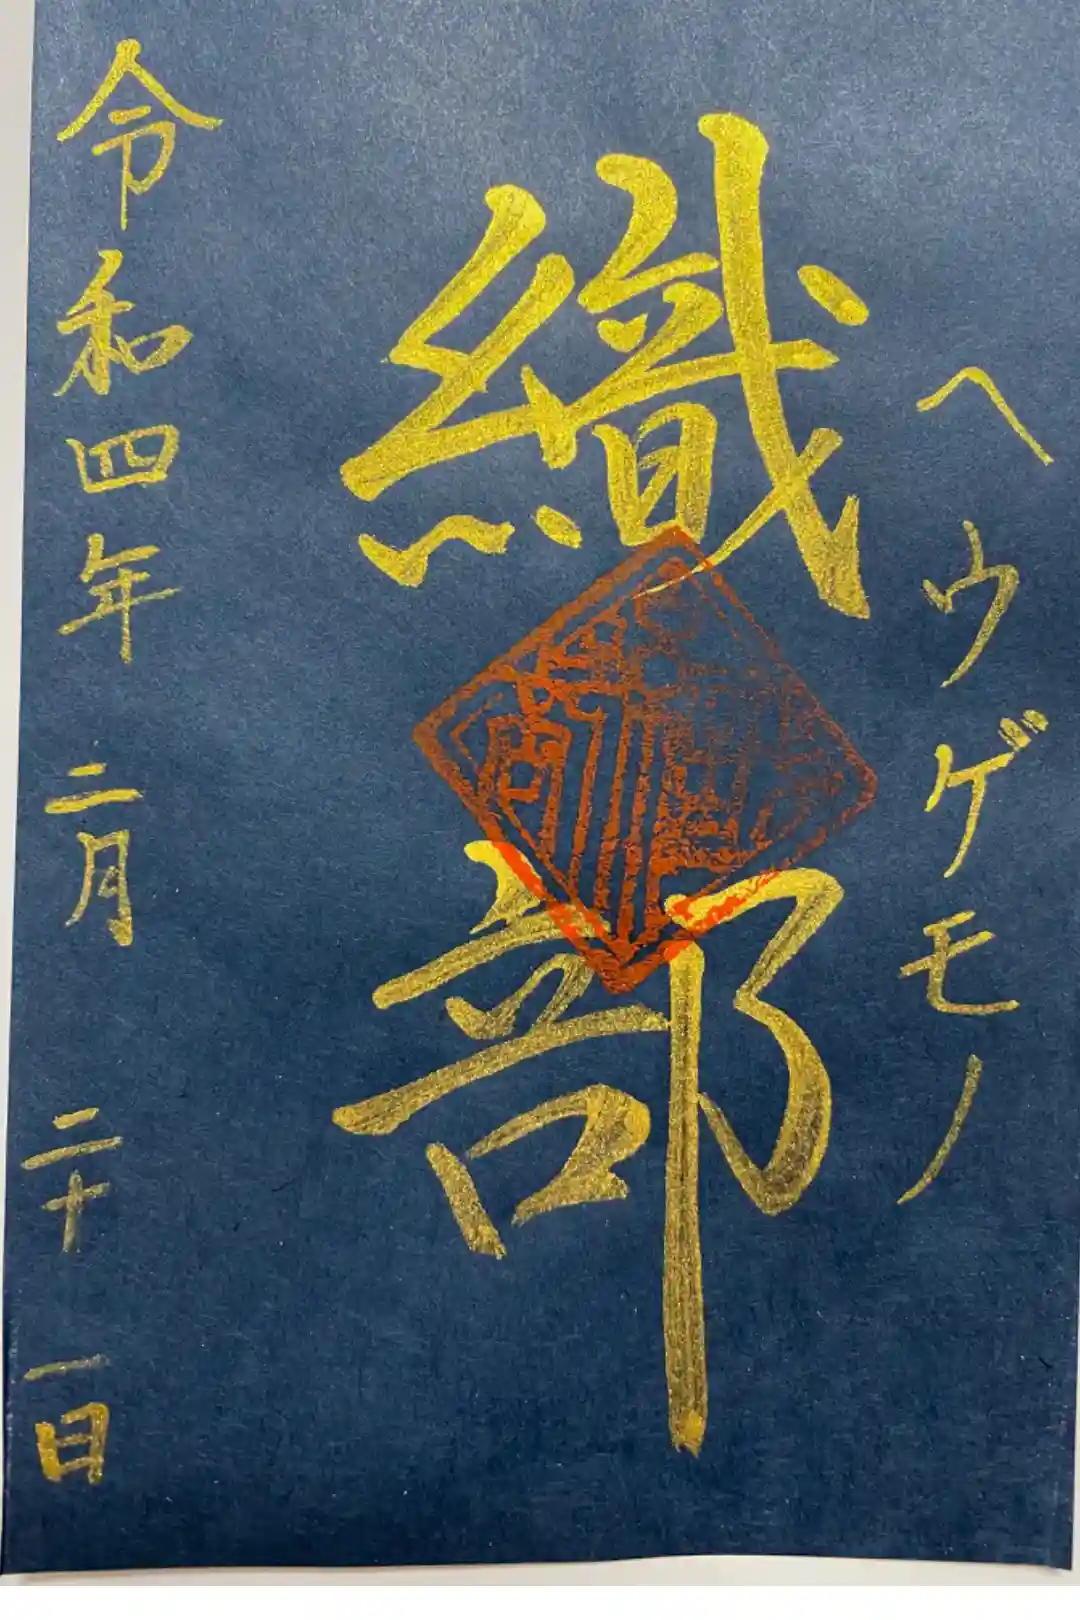 ヘウゲモノ
織部
令和四年二月二十一日